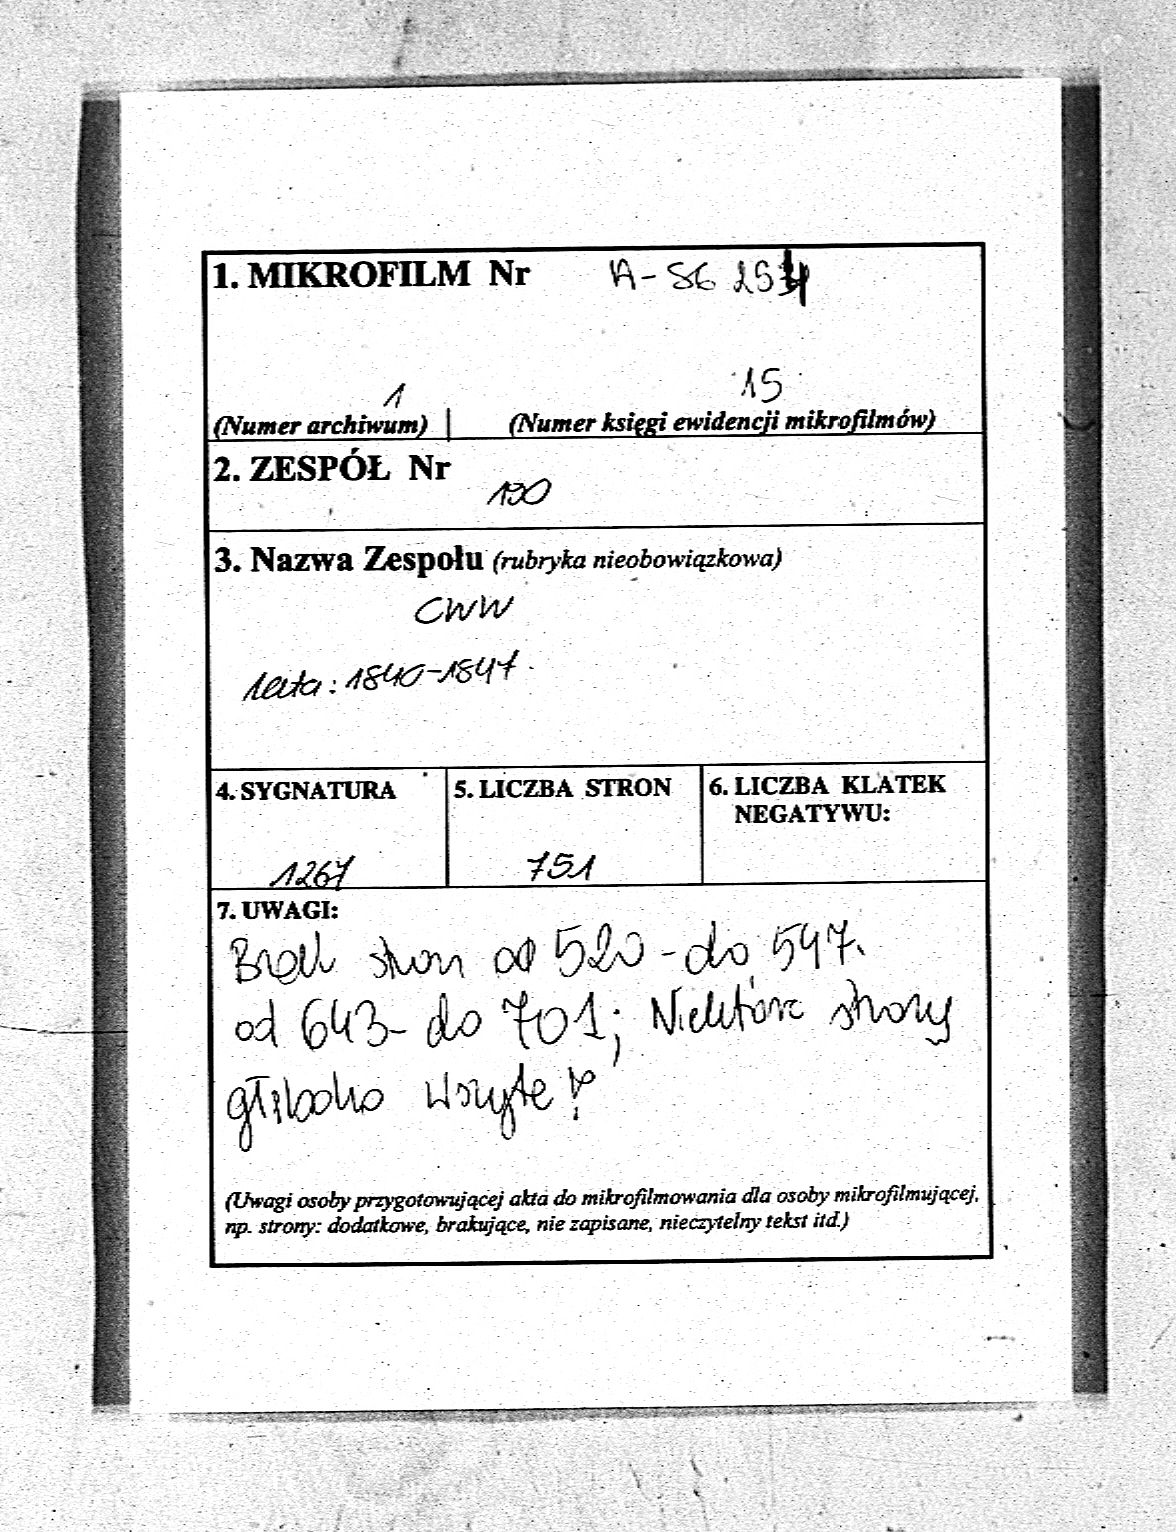 1. MIKROFILM Nr A-56
1 15
(Numer archiwum) (Numer księgi ewidencji mikrofilmów)
2. ZESPÓŁ Nr
190
3. Nazwa Zespołu (rubryka nieobowiązkowa)
CWW
lata: 1840-1847.
4. SYGNATURA 5. LICZBA STRON 6. LICZBA KLATEK
NEGATYWU:
1267 751
7. UWAGI:
Brak stron od 520 - do 547.
od 643 - do 701; Niektóre strony
głęboko wszyte!
(Uwagi osoby przygotowującej akta do mikrofilmowania dla osoby mikrofilmującej,
np. strony: dodatkowe, brakujące, nie zapisane, nieczytelny tekst itd.)